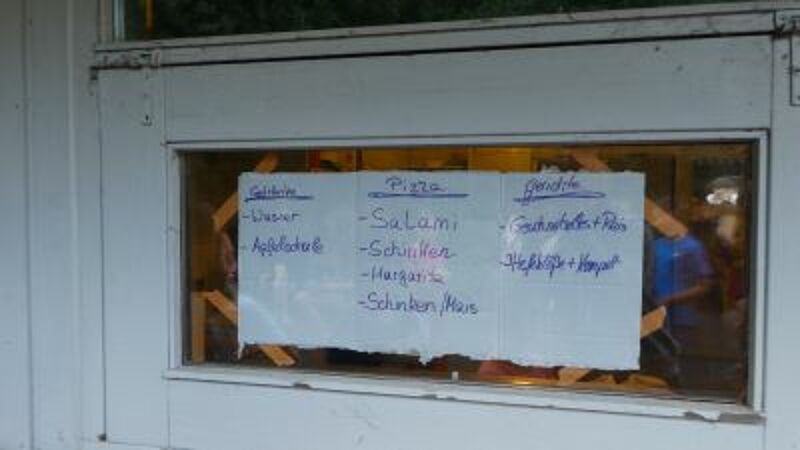 Getränke
- Wasser
- Apfelschorle
Pizza
- Salami
- Schinken
- Margarita
- Schinken/Mais
Gerichte
- Geschnetzeltes + Reis
- Hefeklöße + Kompott